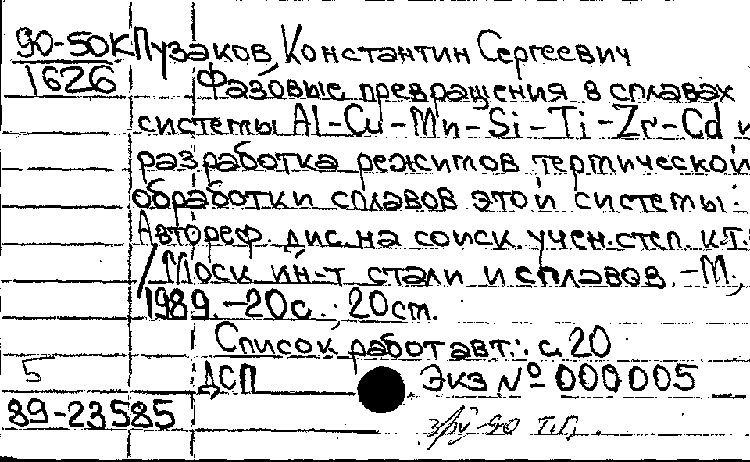 90-50К Пузаков, Константин Сергеевич
1626 Фазовые превращения в сплавах
системы Al-Cu-Mn-Si-Ti-Zr-Cd и
разработка режимов термической
обработки сплавов этой системы:
Автореф. дис. на соиск. учен. степ. к.т.
/Моск. ин-т стали и сплавов. -М.,
1989. -20с.; 20см.
Список работ авт.: с. 20
5 ДСП Экз № 000005
89-23585
90 Т.П.